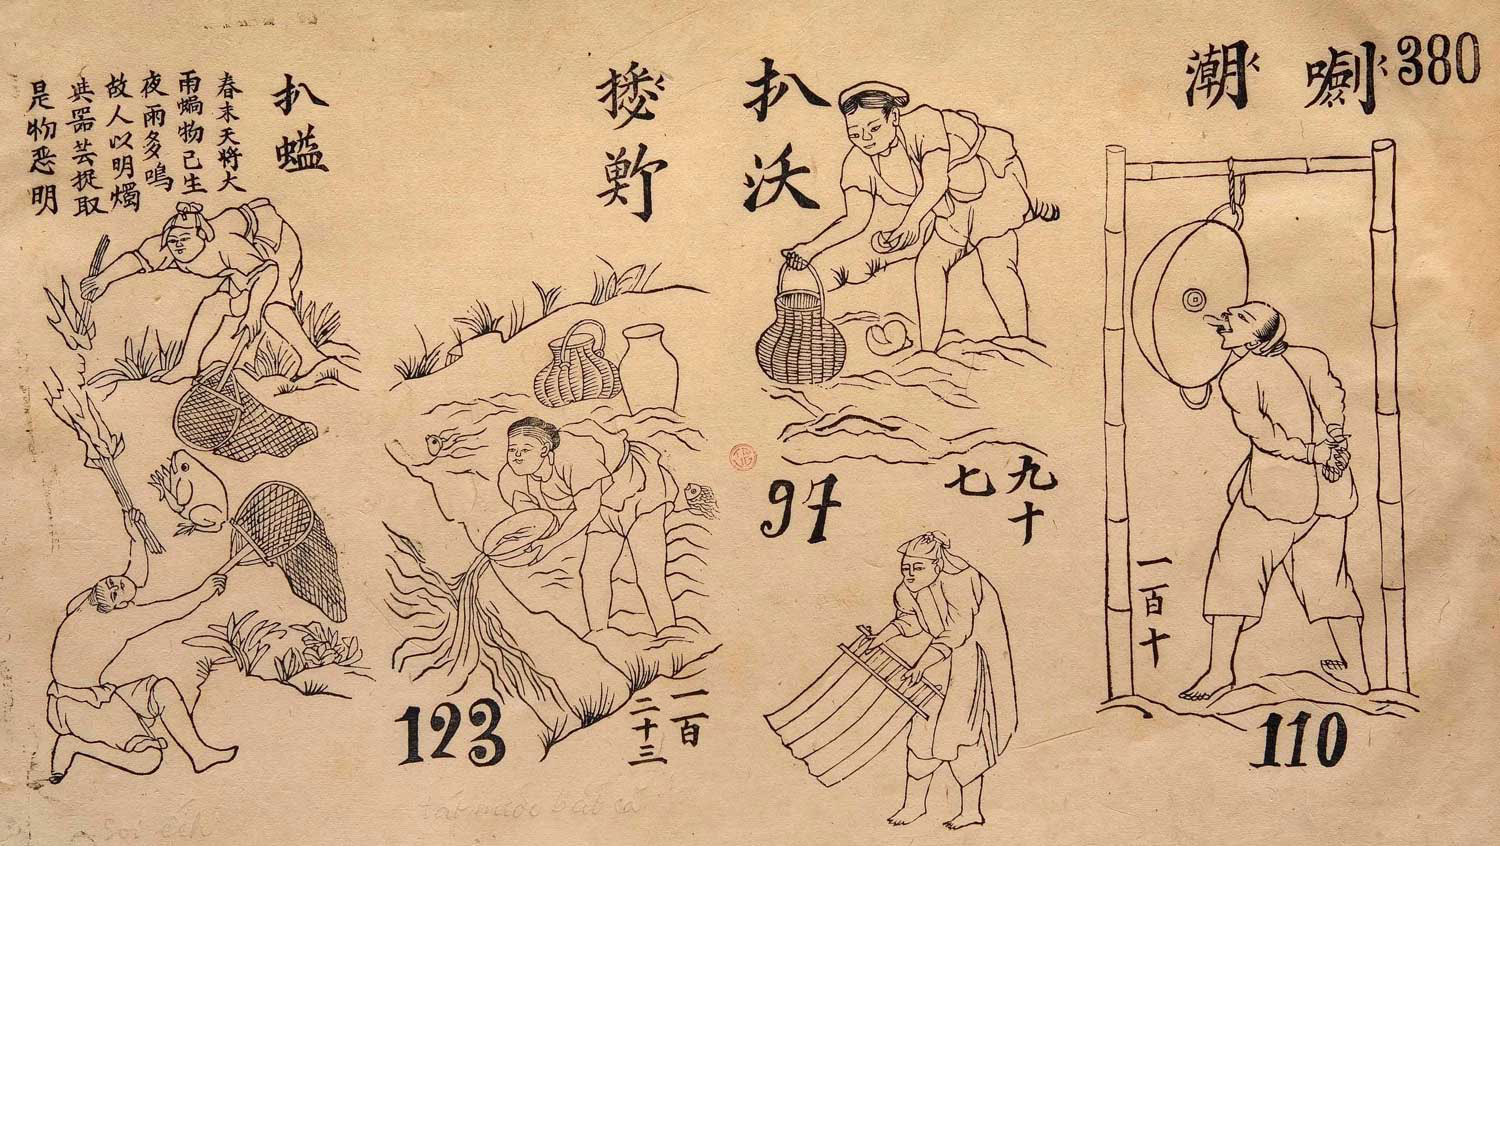 380
潮
110
一百十
扒沃
97
九十
七
123
一百
二十三
扒
春末天将大
雨蝙物已生
夜雨多鳴
故人以明燭
具器芸捉取
是物恶明
Soi ếch
tát nước bắt cá